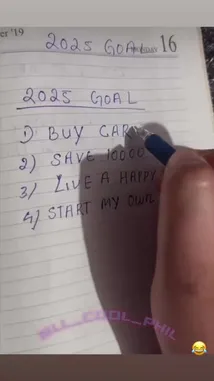 er '19
2025 GOAL
16
2025 GOAL
1) BUY CAR
2) SAVE 10000
3) LIVE A HAPPY
4) START MY OWN
@LL_COOL_PHIL